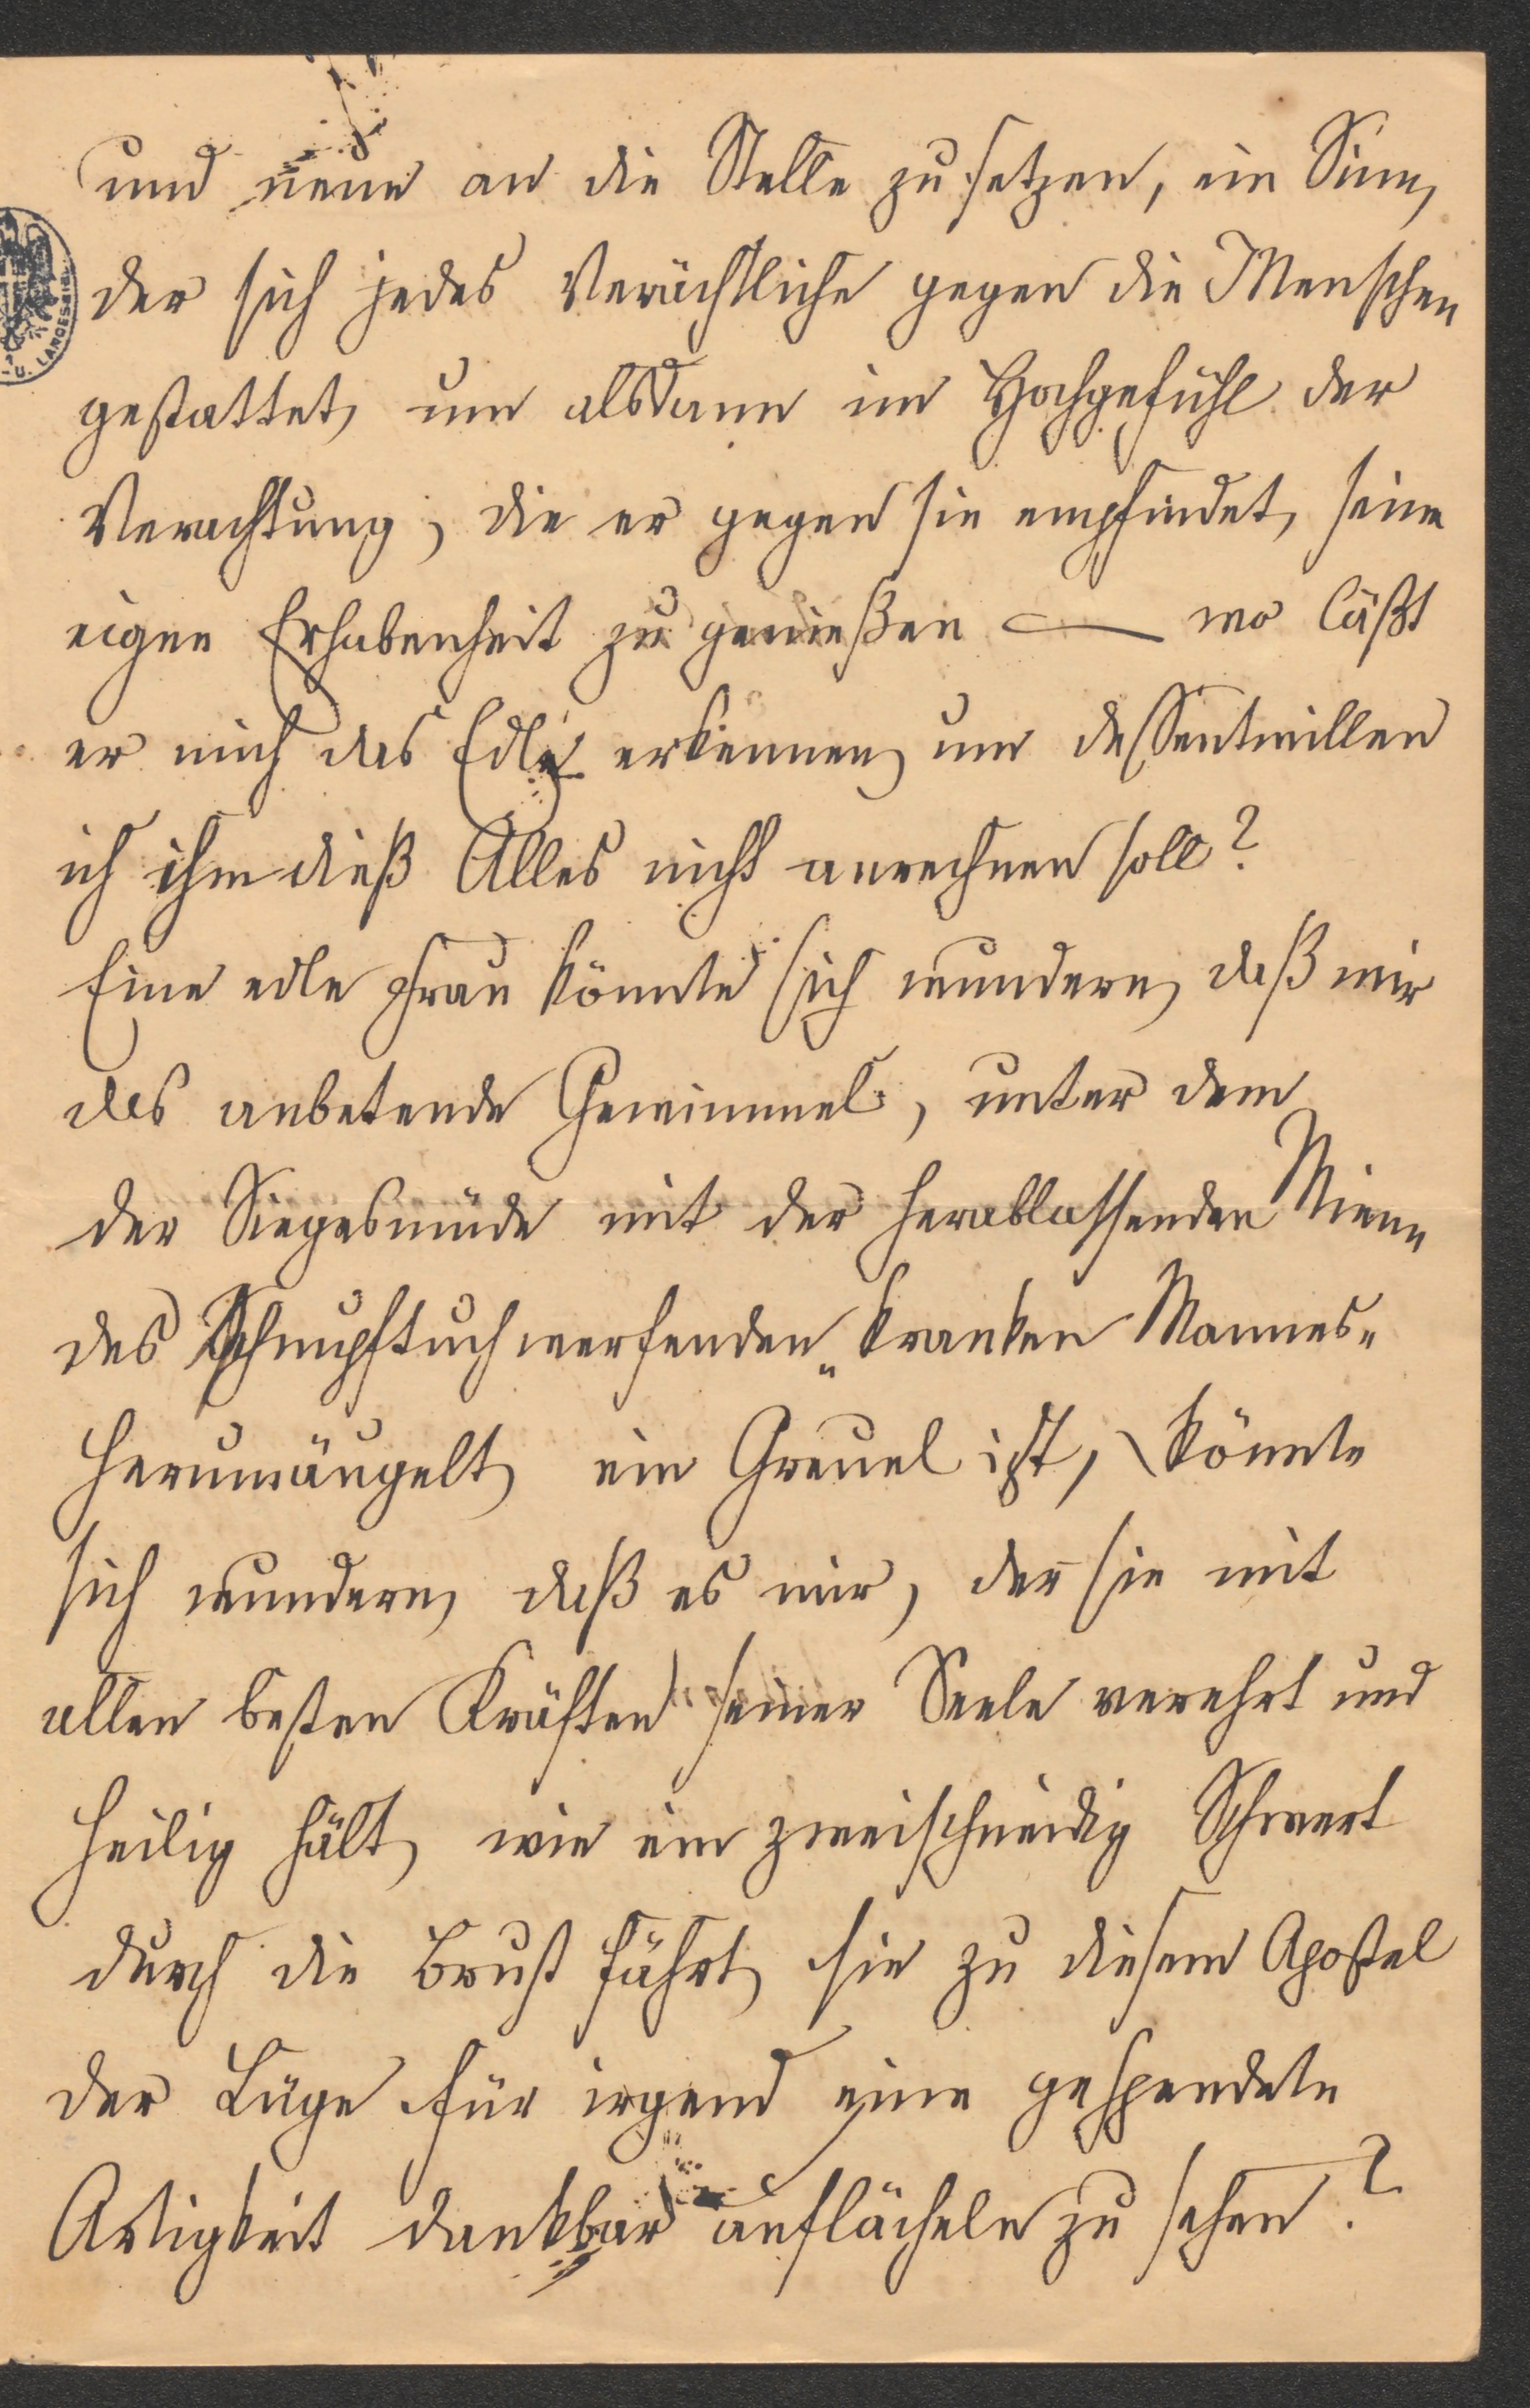 und neue an die Stelle zu setzen, ein Sinn,
der sich jedes Verächtliche gegen die Menschen
gestattet, um alsdann im Hochgefühl der
Verachtung, die er gegen sie empfindet, seine
eigne Erhabenheit zu genießen — wo läßt
er mich das Edle erkennen, um dessentwillen
ich ihm dieß Alles nicht anrechnen soll?
Eine edle Frau könnte sich wundern, daß mir
das anbetende Gewimmel, unter dem
der Siegesmüde mit der herablassenden Miene
des Schnupftuchwerfenden „kranken Mannes“
herumäugelt, ein Greuel ist, könnte
sich wundern, daß es mir, der sie mit
allen besten Kräften seiner Seele verehrt und
heilig hält, wie ein zweischneidig Schwert
durch die Brust fährt, sie zu diesem Apostel
der Lüge für irgend eine gespendete
Artigkeit dankbar auflächeln zu sehen?
U. LANDESBIB